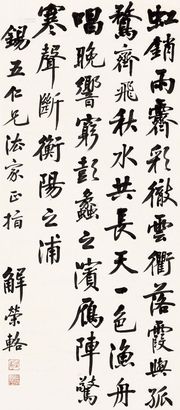 虹銷雨霽彩徹雲衢落霞與孤
鶩齊飛秋水共長天一色漁舟
唱晚響窮彭蠡之濱雁陣驚
寒聲斷衡陽之浦
錫五仁兄法家正指
解榮輅